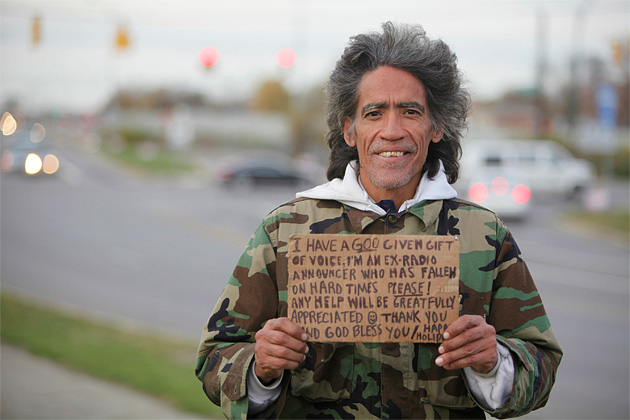 I HAVE A GOD GIVEN GIFT
OF VOICE. I'M AN EX-RADIO
ANNOUNCER WHO HAS FALLEN
ON HARD TIMES PLEASE!
ANY HELP WILL BE GREATFULLY
APPRECIATED ☺ THANK YOU
AND GOD BLESS YOU! HAPP
HOLID